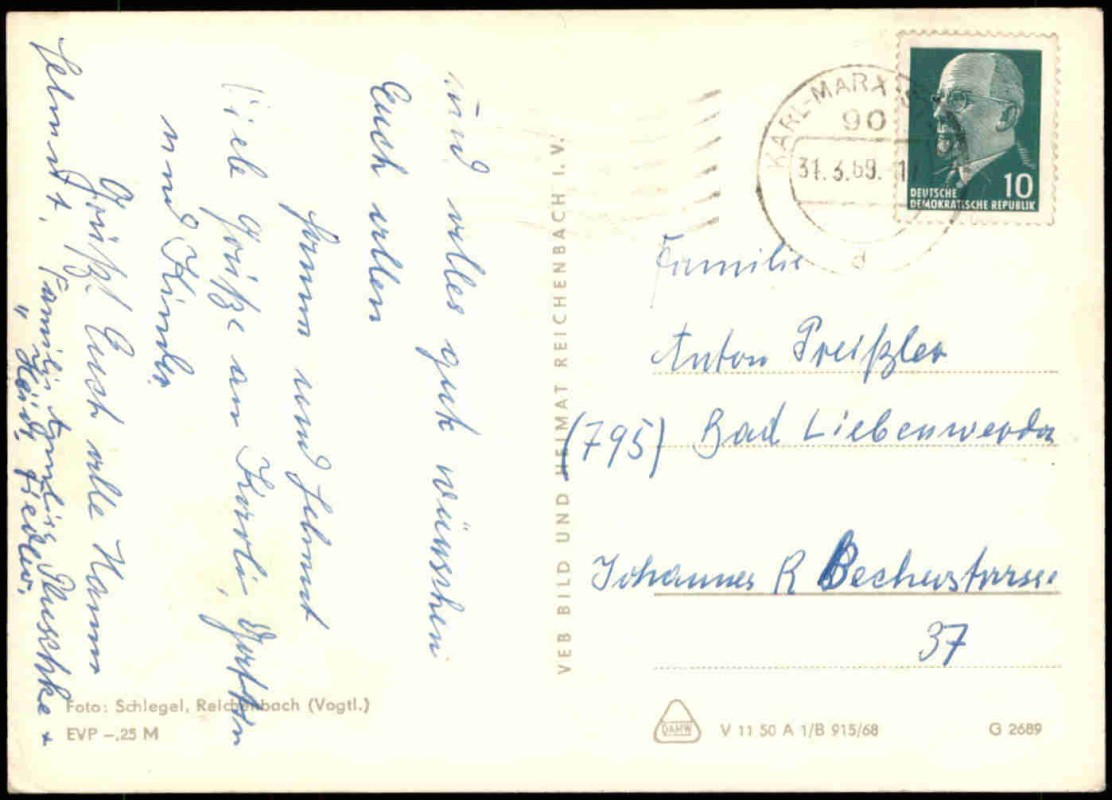 und alles gut wünschen
Euch allen
Hanna und Helmut
Viele Grüße an Karli,
und Kinder.
Grüßt Euch alle Hanna
Helmut, Familie Pluschke +
" Heidi Fiedler.
VEB BILD UND HEIMAT REICHENBACH I. V.
KARL-MARX-
90
31.3.69.
d
DEUTSCHE
DEMOKRATISCHE REPUBLIK
10
Familie
Anton Preißler
(795) Bad Liebenwerda
Johannes R Becherstrasse
37
Foto: Schlegel, Reichenbach (Vogtl.)
EVP –,25 M
DAMW
V 11 50 A 1/B 915/68
G 2689